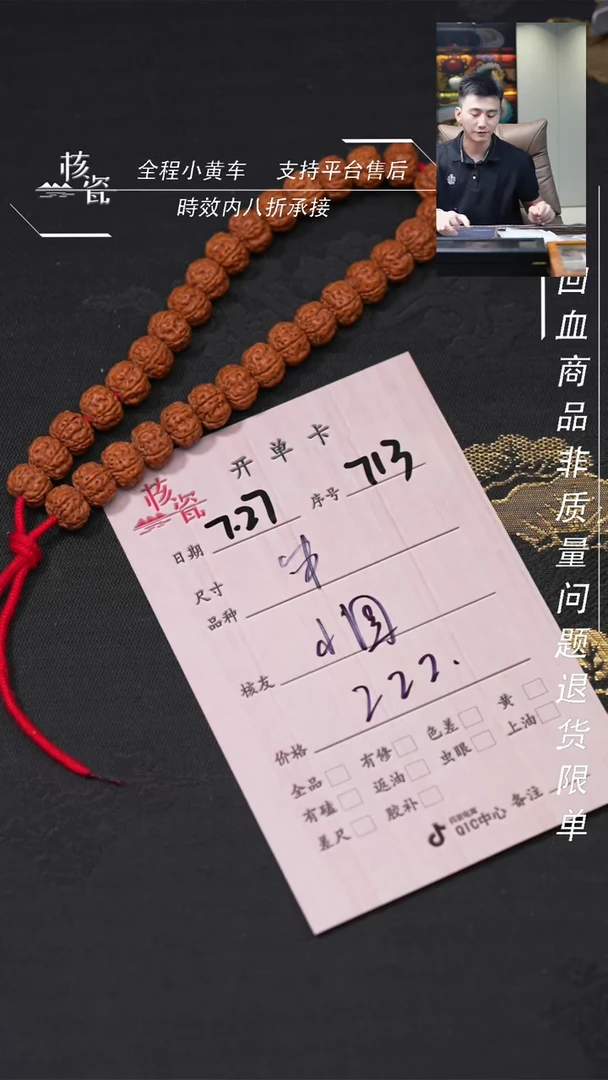 核瓷
全程小黄车 支持平台售后
時效内八折承接
回血商品非质量问题退货限单
开单卡
核瓷
日期 7.27 序号 713
尺寸
品种
核友
价格 222.
全品 有修 色差 黄
有磕 返油 虫眼 上油
差尺 胶补
抖音电商
QIC中心 备注